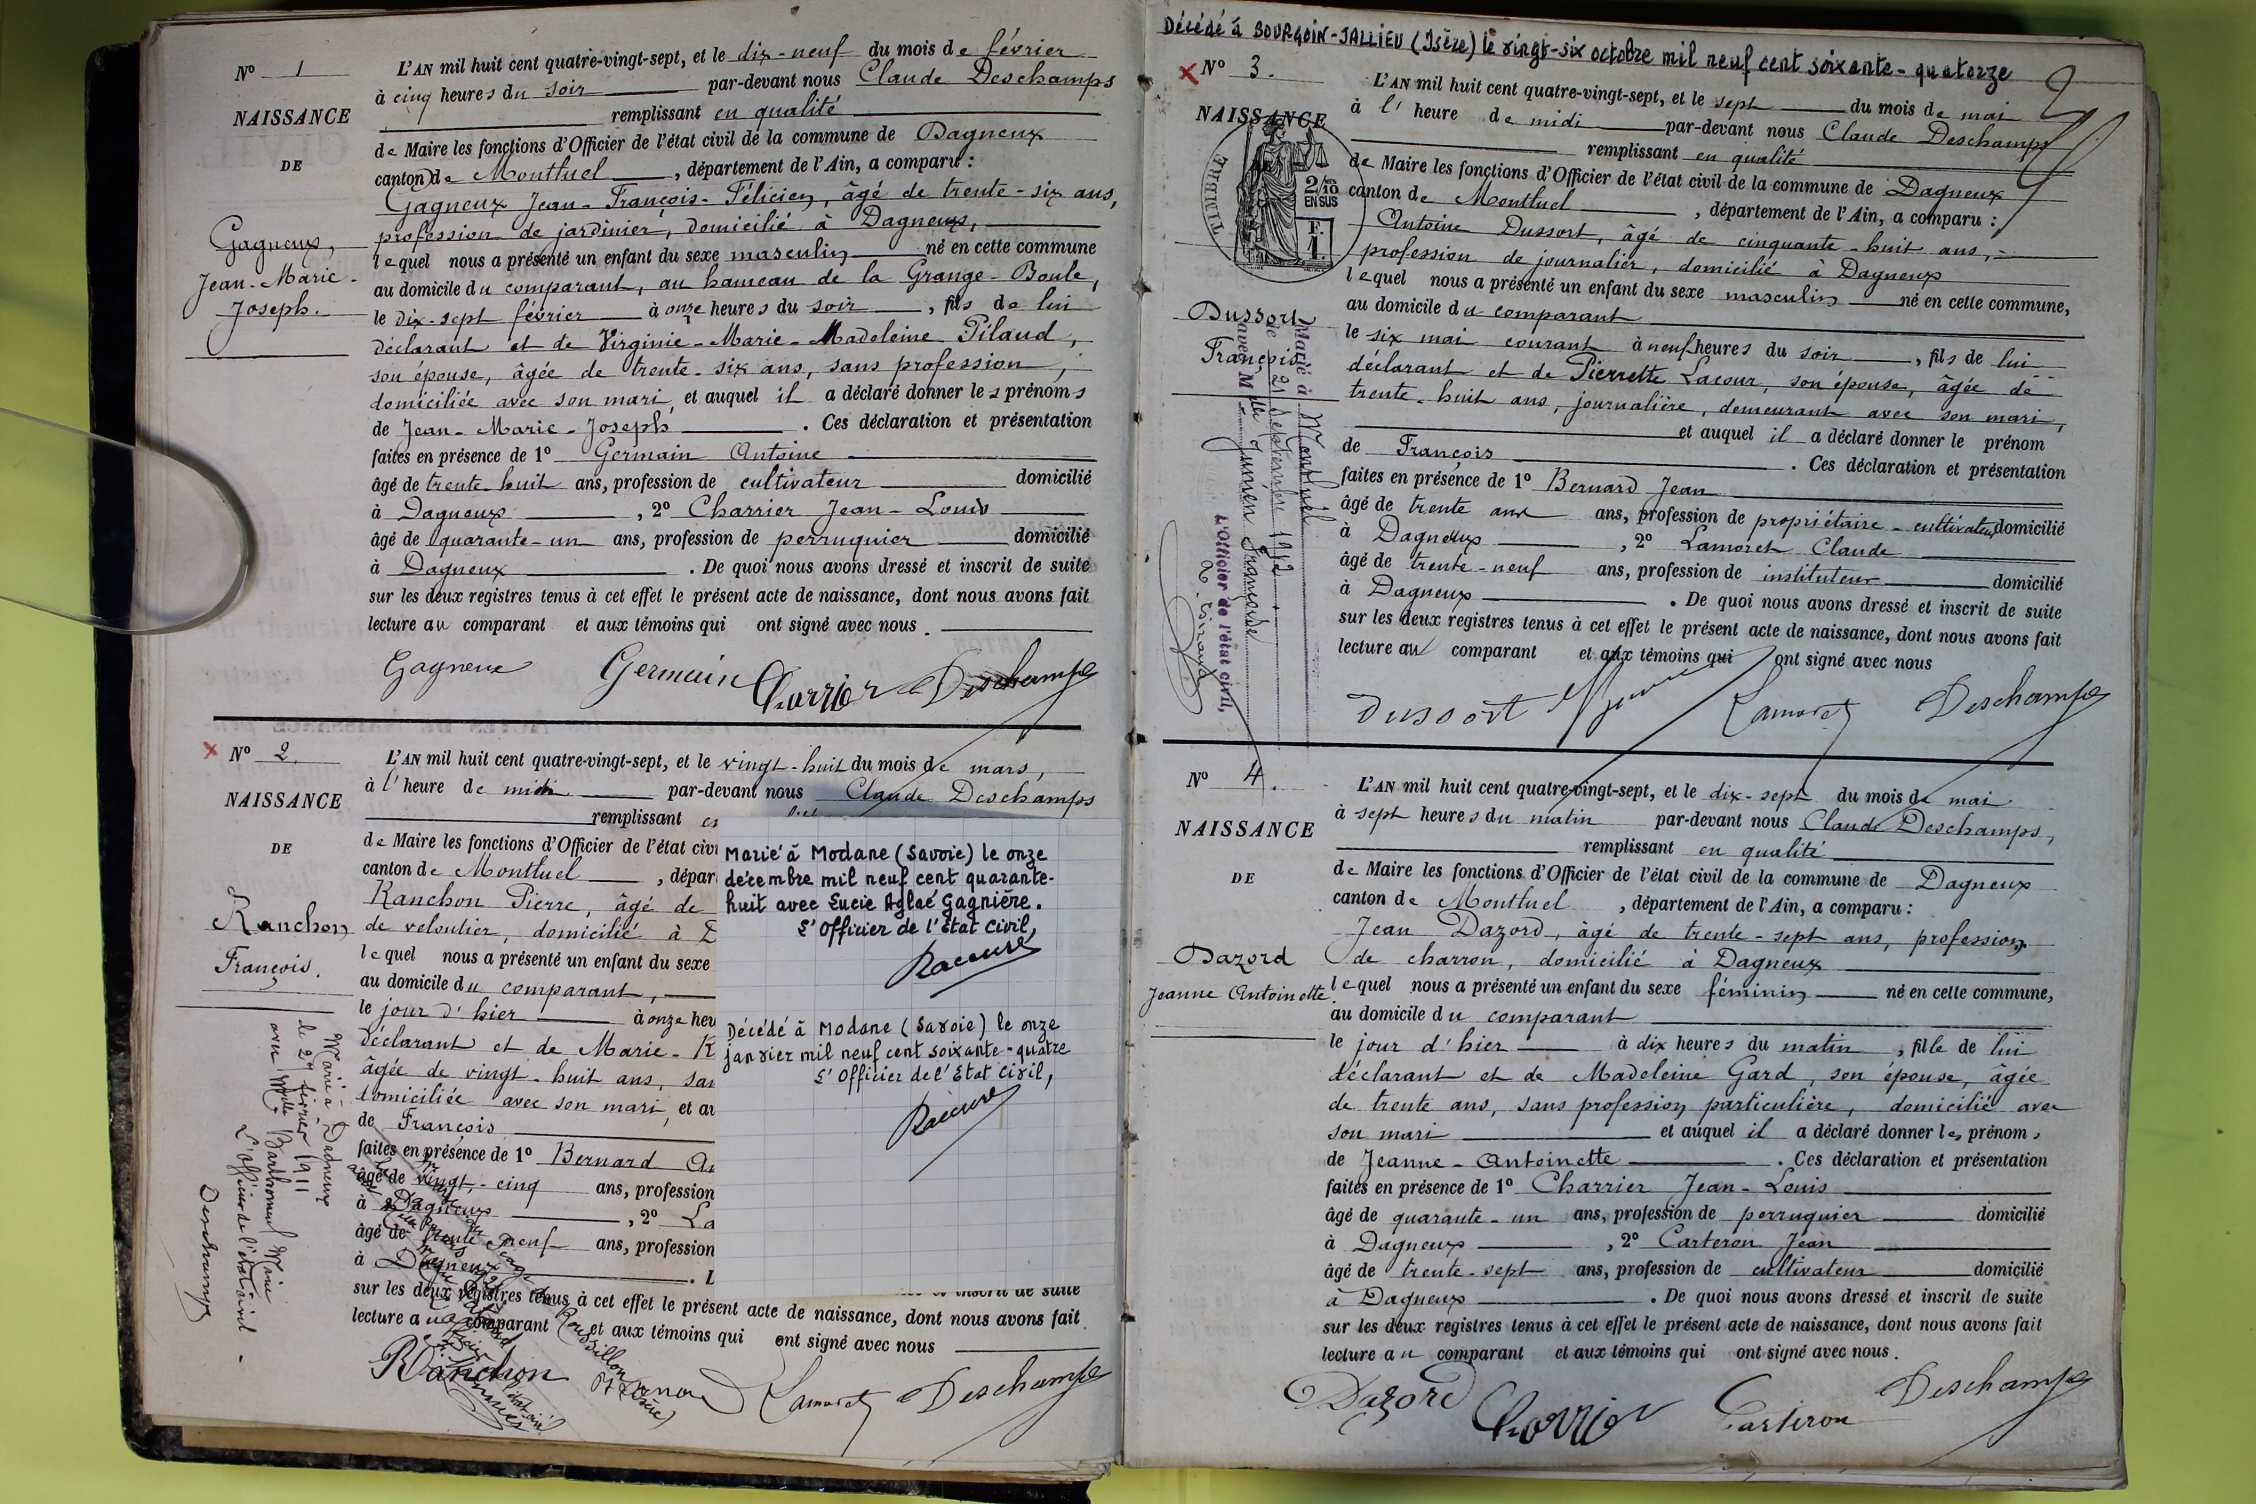 N° 1
NAISSANCE
DE
Gagneux,
Jean-Marie-
Joseph.
L'AN mil huit cent quatre-vingt-sept, et le dix-neuf du mois de février
à cinq heures du soir par-devant nous Claude Deschamps
remplissant en qualité
de Maire les fonctions d'Officier de l'état civil de la commune de Dagneux
canton de Montluel, département de l'Ain, a comparu :
Gagneux Jean-François-Félicien, âgé de trente-six ans,
profession de jardinier, domicilié à Dagneux,
lequel nous a présenté un enfant du sexe masculin né en cette commune
au domicile du comparant, au hameau de la Grange-Boule,
le dix-sept février à onze heures du soir, fils de lui
déclarant et de Virginie-Marie-Madeleine Pilaud,
son épouse, âgée de trente-six ans, sans profession,
domiciliée avec son mari, et auquel il a déclaré donner les prénoms
de Jean-Marie-Joseph. Ces déclaration et présentation
faites en présence de 1° Germain Antoine
âgé de trente-huit ans, profession de cultivateur domicilié
à Dagneux, 2° Charrier Jean-Louis
âgé de quarante-un ans, profession de perruquier domicilié
à Dagneux. De quoi nous avons dressé et inscrit de suite
sur les deux registres tenus à cet effet le présent acte de naissance, dont nous avons fait
lecture au comparant et aux témoins qui ont signé avec nous.
Gagneux Germain Charrier Deschamps
N° 2.
NAISSANCE
DE
Ranchon
François.
Marié à Dagneux
le 27 février 1911
avec Mlle Barthomeuf Marie
L'officier de l'état civil
Deschamps
L'AN mil huit cent quatre-vingt-sept, et le vingt-huit du mois de mars,
à l'heure de midi par-devant nous Claude Deschamps
remplissant
de Maire les fonctions d'Officier de l'état civ
canton de Montluel, dépar
Ranchon Pierre, âgé de
de veloutier, domicilié à D
lequel nous a présenté un enfant du sexe
au domicile du comparant,
le jour d'hier à onze heu
déclarant et de Marie-
âgée de vingt-huit ans, san
domiciliée avec son mari, et au
de François
faites en présence de 1° Bernard An
âgé de vingt-cinq ans, profession
à Dagneux, 2° La
âgé de trente-neuf ans, profession
à Dagneux
sur les deux registres tenus à cet effet le présent acte de naissance, dont nous avons fait
lecture au comparant et aux témoins qui ont signé avec nous
Ranchon Bernard Lamoret Deschamps
Marié à Modane (Savoie) le onze
décembre mil neuf cent quarante-
huit avec Lucie Aglaé Gagnière.
L'Officier de l'Etat Civil,
Décédé à Modane (Savoie) le onze
janvier mil neuf cent soixante-quatre
L'Officier de l'Etat Civil,
Décédé à BOURGOIN-JALLIEU (Isère) le vingt-six octobre mil neuf cent soixante-quatorze
N° 3.
NAISSANCE
TIMBRE
2/10
EN SUS
F.
1.
Dussort
François
Marié à Montluel
le 21 septembre 1912
avec Mlle Junien Françoise
L'Officier de l'état civil,
L'AN mil huit cent quatre-vingt-sept, et le sept du mois de mai
à l'heure de midi par-devant nous Claude Deschamps
remplissant en qualité
de Maire les fonctions d'Officier de l'état civil de la commune de Dagneux
canton de Montluel, département de l'Ain, a comparu :
Antoine Dussort, âgé de cinquante-huit ans,
profession de journalier, domicilié à Dagneux
lequel nous a présenté un enfant du sexe masculin né en cette commune,
au domicile du comparant
le six mai courant à neuf heures du soir, fils de lui
déclarant et de Pierrette Lacour, son épouse, âgée de
trente-huit ans, journalière, demeurant avec son mari,
et auquel il a déclaré donner le prénom
de François. Ces déclaration et présentation
faites en présence de 1° Bernard Jean
âgé de trente ans ans, profession de propriétaire-cultivateur domicilié
à Dagneux, 2° Lamoret Claude
âgé de trente-neuf ans, profession de instituteur domicilié
à Dagneux. De quoi nous avons dressé et inscrit de suite
sur les deux registres tenus à cet effet le présent acte de naissance, dont nous avons fait
lecture au comparant et aux témoins qui ont signé avec nous
Dussort Lamoret Deschamps
N° 4.
NAISSANCE
DE
Dazord
Jeanne Antoinette.
L'AN mil huit cent quatre-vingt-sept, et le dix-sept du mois de mai
à sept heures du matin par-devant nous Claude Deschamps,
remplissant en qualité
de Maire les fonctions d'Officier de l'état civil de la commune de Dagneux
canton de Montluel, département de l'Ain, a comparu :
Jean Dazord, âgé de trente-sept ans, profession
de charron, domicilié à Dagneux
lequel nous a présenté un enfant du sexe féminin né en cette commune,
au domicile du comparant
le jour d'hier à dix heures du matin, fille de lui
déclarant et de Madeleine Gard, son épouse, âgée
de trente ans, sans profession particulière, domicilié avec
son mari et auquel il a déclaré donner les prénoms
de Jeanne-Antoinette. Ces déclaration et présentation
faites en présence de 1° Charrier Jean-Louis
âgé de quarante-un ans, profession de perruquier domicilié
à Dagneux, 2° Carteron Jean
âgé de trente-sept ans, profession de cultivateur domicilié
à Dagneux. De quoi nous avons dressé et inscrit de suite
sur les deux registres tenus à cet effet le présent acte de naissance, dont nous avons fait
lecture au comparant et aux témoins qui ont signé avec nous.
Dazord Charrier Carteron Deschamps